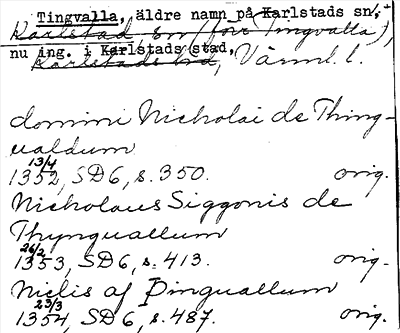 Tingvalla, äldre namn på Karlstads sn,+
Karlstad sn (förr Tingvalla),
nu ing. i Karlstads stad,
Karlstads hd, Värml. l.
domini Nicholai de Thing-
ualdum
13/4
1352, SD6, s. 350. orig.
Nicholaus Siggonis de
Thynguallum
26/2
1353, SD6, s. 413. orig.
Niclis af Þinguallum
23/3
1354, SD6, s. 487. orig.